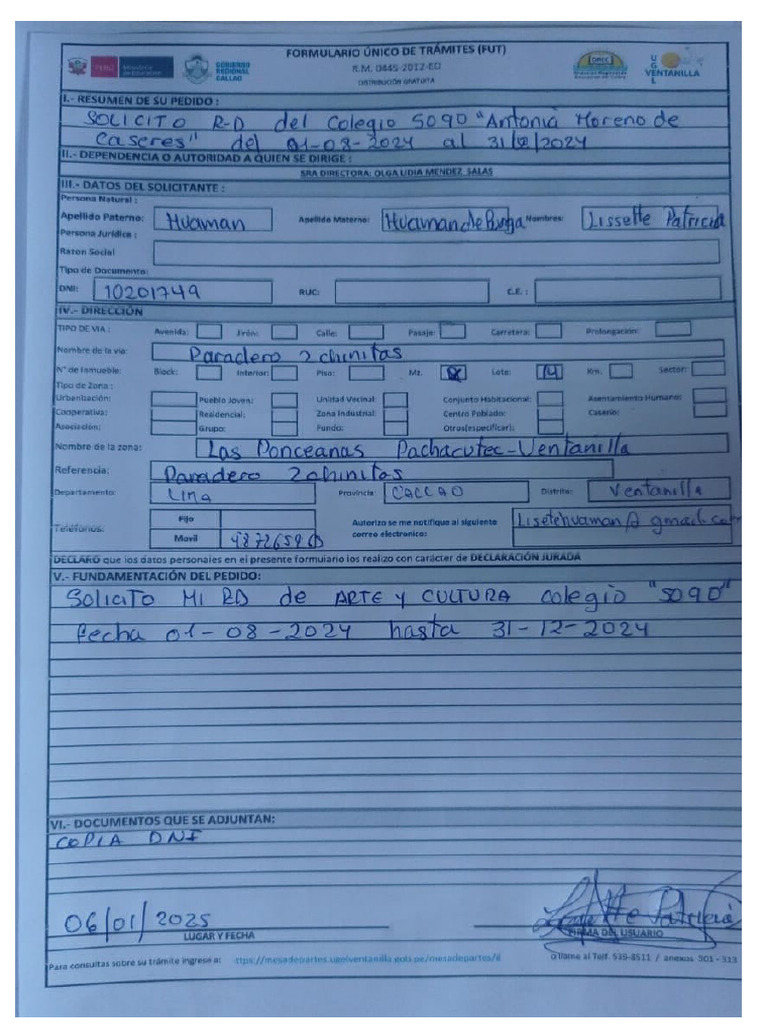 FORMULARIO ÚNICO DE TRÁMITES (FUT)
R.M. 0445-2012-ED
DISTRIBUCIÓN GRATUITA
PERÚ Ministerio de Educación GOBIERNO REGIONAL CALLAO DREC UGEL VENTANILLA
I.- RESUMEN DE SU PEDIDO :
SOLICITO R-D del Colegio 5090 "Antonia Moreno de
Caseres" del 01-08-2024 al 31/12/2024
II.- DEPENDENCIA O AUTORIDAD A QUIEN SE DIRIGE :
SRA DIRECTORA: OLGA LIDIA MENDEZ SALAS
III.- DATOS DEL SOLICITANTE :
Persona Natural :
Apellido Paterno: Huaman Apellido Materno: Huaman de Nombres: Lissette Patricia
Persona Jurídica :
Razon Social
Tipo de Documento:
DNI: 10201749 RUC: C.E. :
IV.- DIRECCIÓN
TIPO DE VIA : Avenida: Jirón: Calle: Pasaje: Carretera: Prolongación:
Nombre de la via: Paradero 2 chinitas
N° de Inmueble: Block: Interior: Piso: Mz. Lote: 14 Km. Sector:
Tipo de Zona :
Urbanización: Pueblo Joven: Unidad Vecinal: Conjunto Habitacional: Asentamiento Humano:
Cooperativa: Residencial: Zona Industrial: Centro Poblado: Caserio:
Asociación: Grupo: Fundo: Otros(especificar):
Nombre de la zona: Las Ponceanas Pachacutec-Ventanilla
Referencia: Paradero 2chinitas
Departamento: Lima Provincia: CACLAO Distrito: Ventanilla
Teléfonos: Fijo Autorizo se me notifique al siguiente correo electronico: Lisetehuaman@gmail.com
Movil
DECLARO que los datos personales en el presente formulario los realizo con carácter de DECLARACIÓN JURADA
V.- FUNDAMENTACIÓN DEL PEDIDO:
Solicito MI RD de ARTE y CULTURA colegio "5090"
fecha 01-08-2024 hasta 31-12-2024
VI.- DOCUMENTOS QUE SE ADJUNTAN:
COPIA DNI
06/01/2025
LUGAR Y FECHA FIRMA DEL USUARIO
Para consultas sobre su trámite ingrese a: ttps://mesadepartes.ugelventanilla.gob.pe/mesadepartes/# o llame al Telf. 539-8511 / anexos 301 - 313